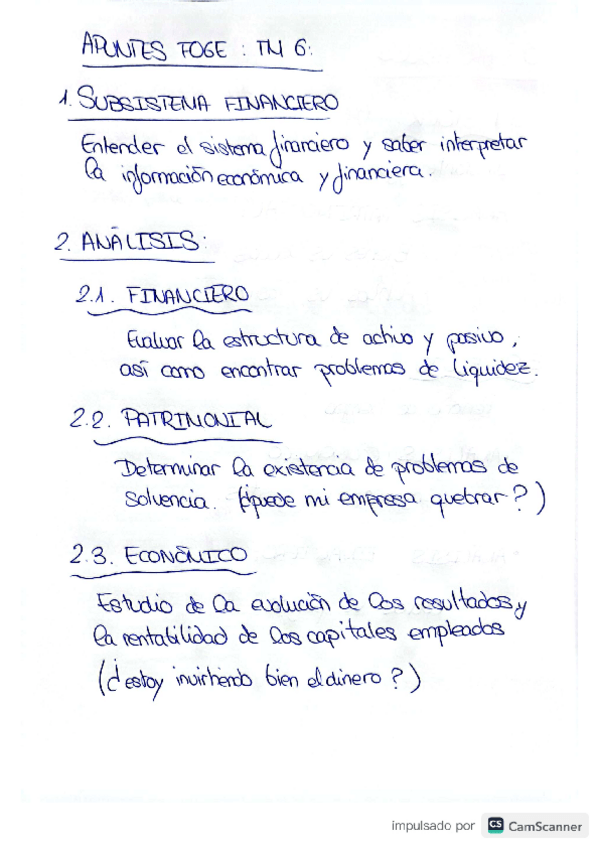 APUNTES FOGE : TM 6:
1. SUBSISTEMA FINANCIERO
Entender el sistema financiero y saber interpretar
la información económica y financiera.
2. ANÁLISIS:
2.1. FINANCIERO
Evaluar la estructura de activo y pasivo,
así como encontrar problemas de liquidez.
2.2. PATRIMONIAL
Determinar la existencia de problemas de
solvencia. (¿puede mi empresa quebrar?)
2.3. ECONÓMICO
Estudio de la evolución de los resultados y
la rentabilidad de los capitales empleados
(¿estoy invirtiendo bien el dinero?)
impulsado por CS CamScanner